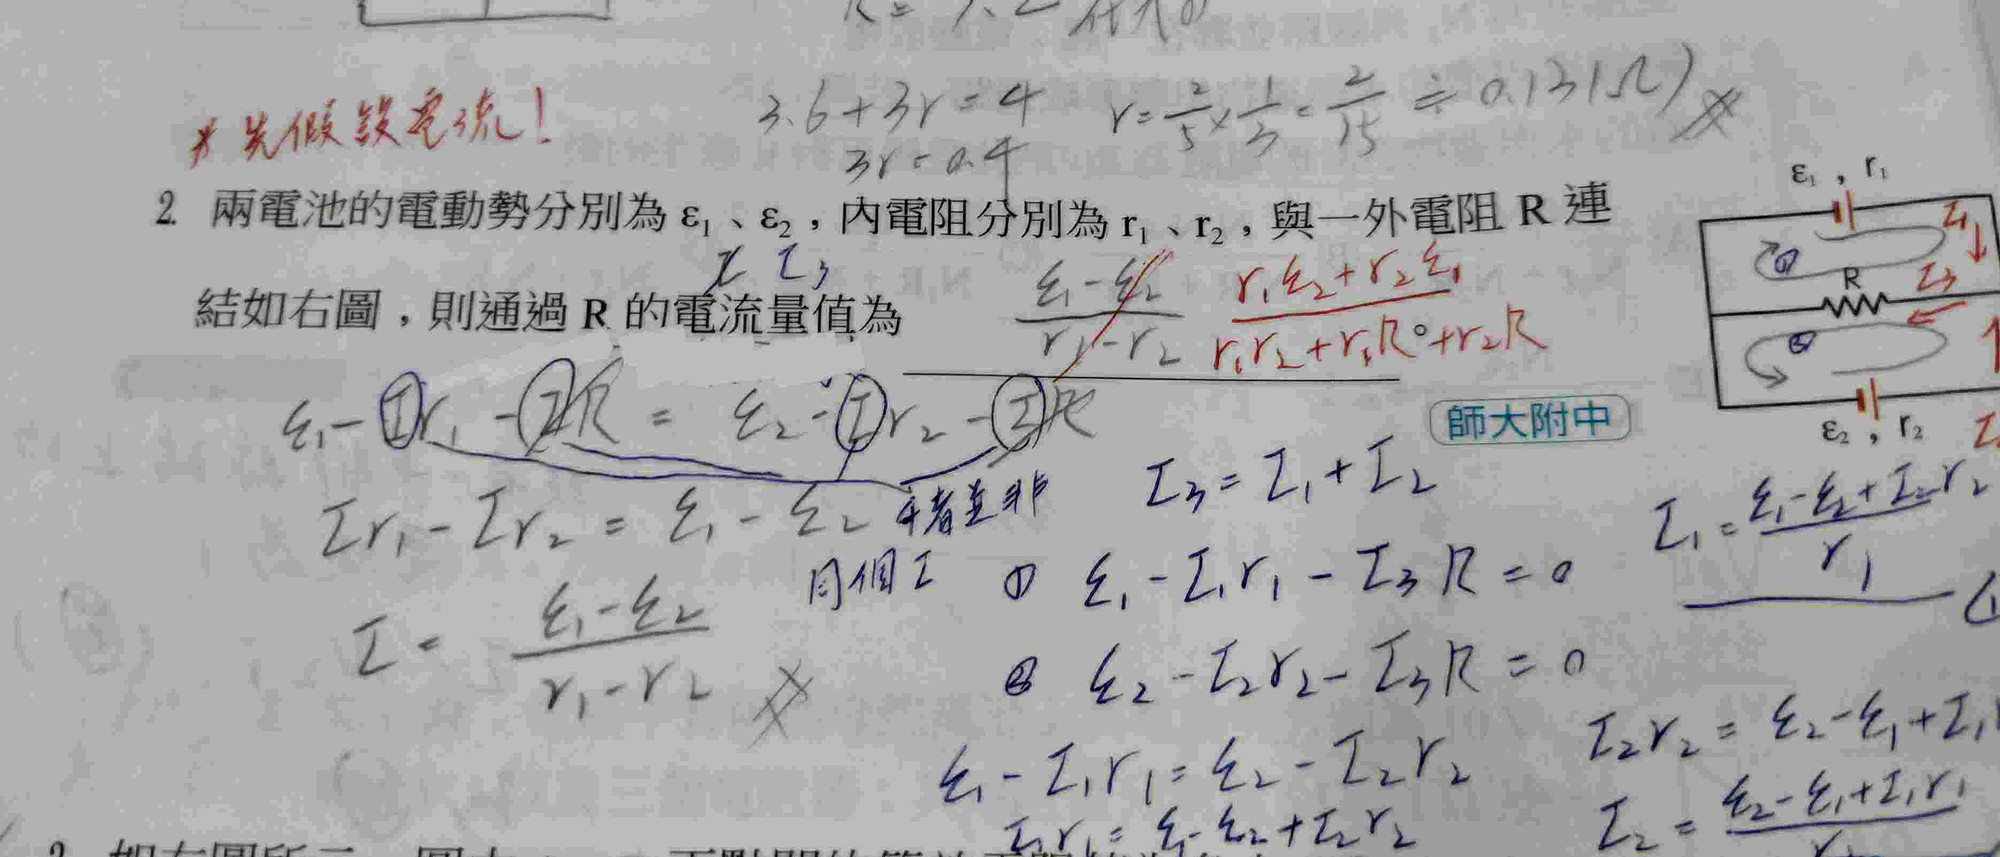 3.6+3r=4 r=2/5×1/3=2/15≒0.13(Ω)
*先假設電流!
3r=0.4
2 兩電池的電動勢分別為 ε₁、ε₂，內電阻分別為 r₁、r₂，與一外電阻 R 連
I₃
結如右圖，則通過 R 的電流量值為 (ε₁-ε₂)/(r₁-r₂) (r₁ε₂+r₂ε₁)/(r₁r₂+r₁R+r₂R)。
師大附中
ε₁, r₁
I₁
①
R
I₃
②
ε₂, r₂
ε₁-Ir₁-IR=ε₂-Ir₂-IR
Ir₁-Ir₂=ε₁-ε₂
4者並非
同個I
I=(ε₁-ε₂)/(r₁-r₂)
I₃=I₁+I₂
① ε₁-I₁r₁-I₃R=0
② ε₂-I₂r₂-I₃R=0
ε₁-I₁r₁=ε₂-I₂r₂
I₁r₁=ε₁-ε₂+I₂r₂
I₁=(ε₁-ε₂+I₂r₂)/r₁
I₂r₂=ε₂-ε₁+I₁
I₂=(ε₂-ε₁+I₁r₁)/